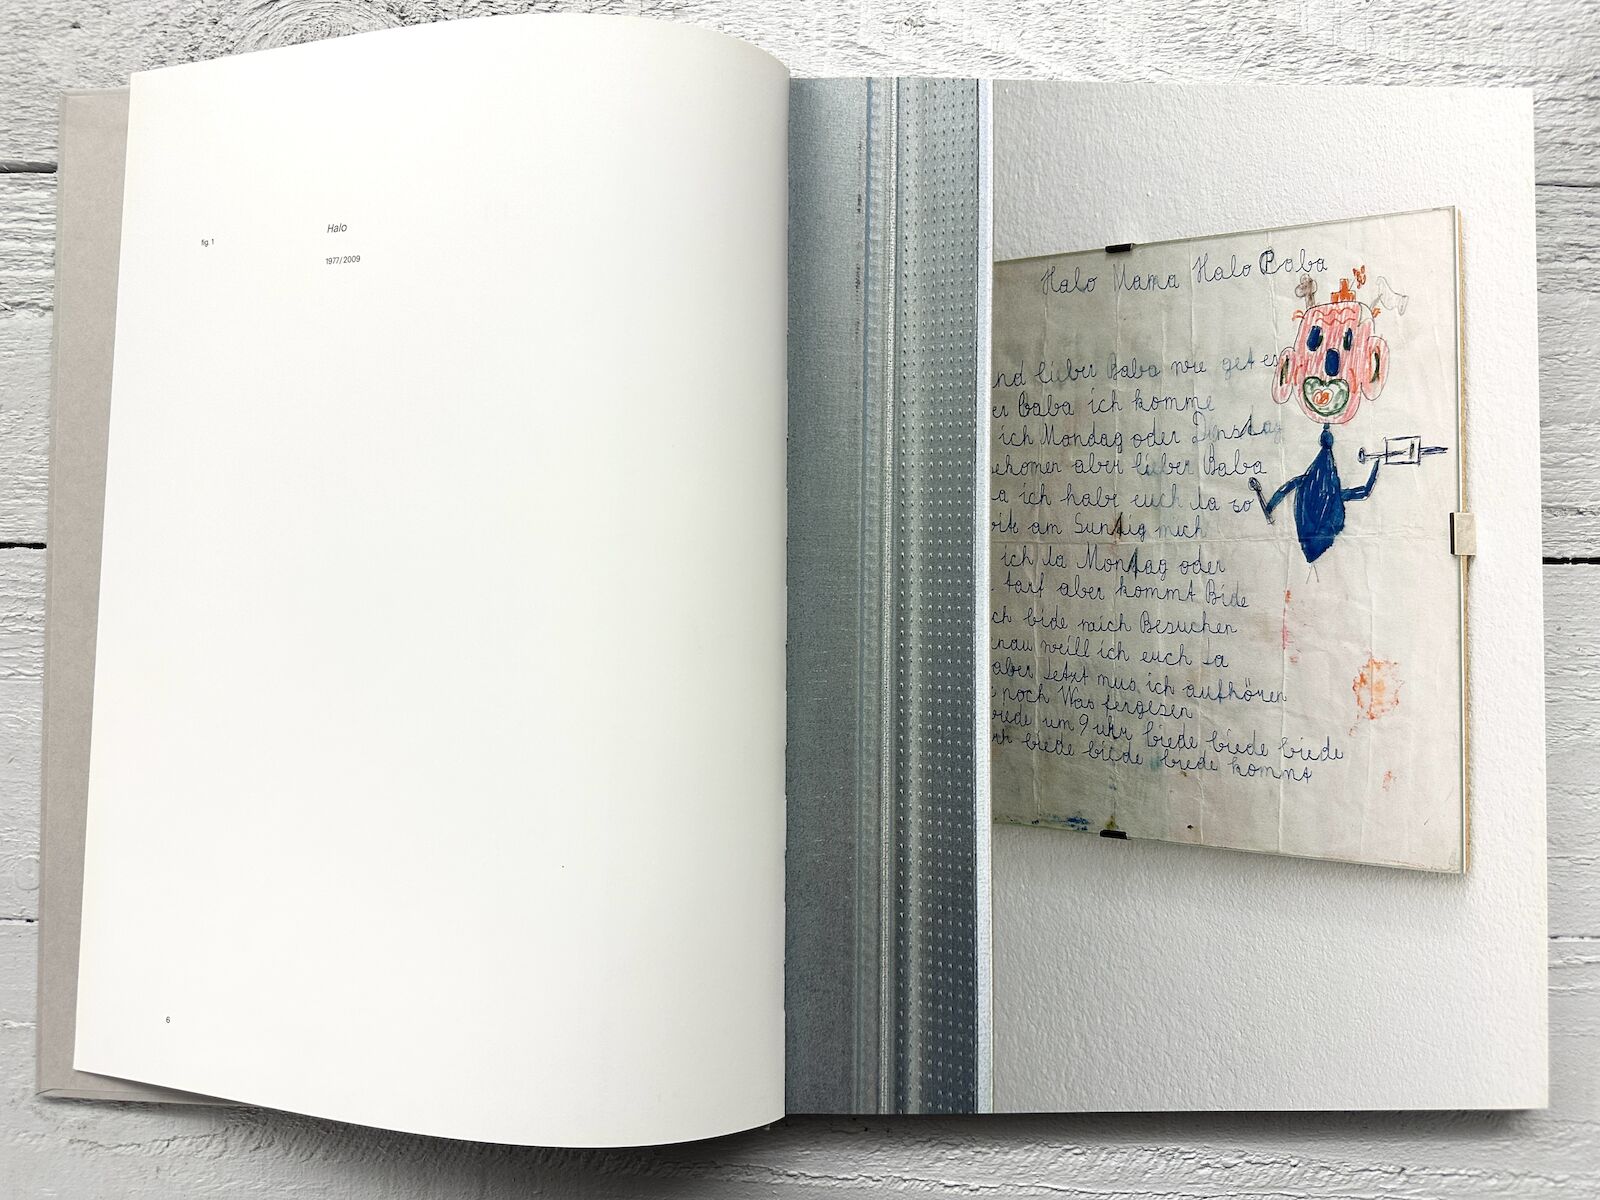 fig. 1
Halo
1977/2009
6
Halo Mama Halo Baba
nd lieber Baba wie get es
er Baba ich komme
ich Mondag oder Dinstag
ekomen aber lieber Baba
a ich habe euch da so
am Suntig mich
ich da Montag oder
tarf aber kommt Bide
ch bide mich Besuchen
nau weill ich euch sa
aber Jetzt mus ich aufhören
noch Was fergesen
biede um 9 uhr biede biede biede
biede biede biede kommt